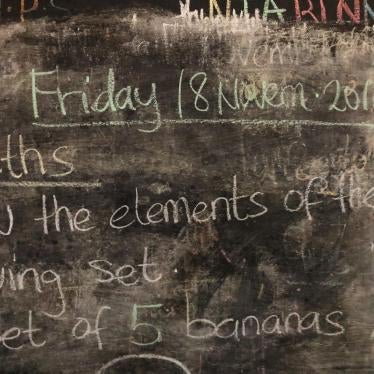 Friday 18 Novem. 201
ths
the elements of the
wing set.
et of 5 bananas